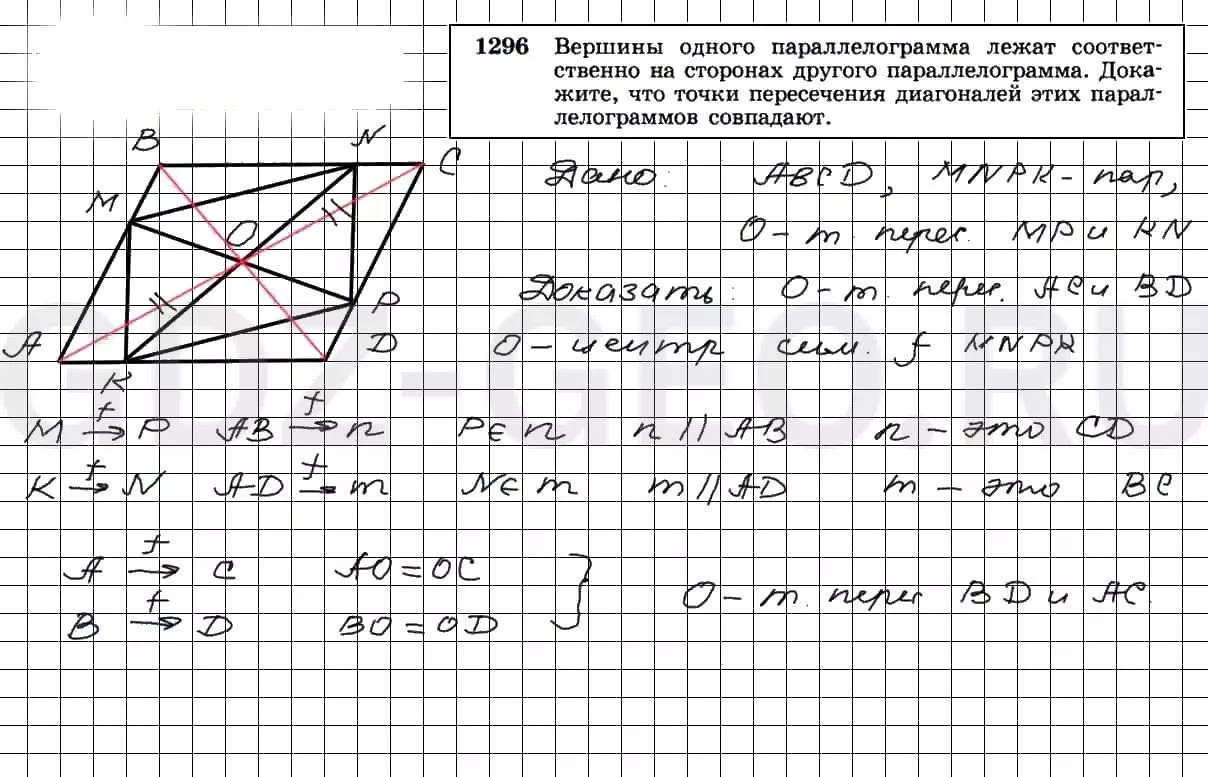 1296 Вершины одного параллелограмма лежат соответ-
ственно на сторонах другого параллелограмма. Дока-
жите, что точки пересечения диагоналей этих парал-
лелограммов совпадают.
B N C
M O
P
A K D
Дано: ABCD, MNPK - пар,
O - т. перес. MP и KN
Доказать: O - т. перес. AC и BD
O - центр сим. f MNPK
GDZ-GEO.RU
M →f P AB →f n P∈n n || AB n - это CD
K →f N AD →f m N∈m m || AD m - это BC
A →f C AO = OC
B →f D BO = OD } O - т. перес BD и AC.